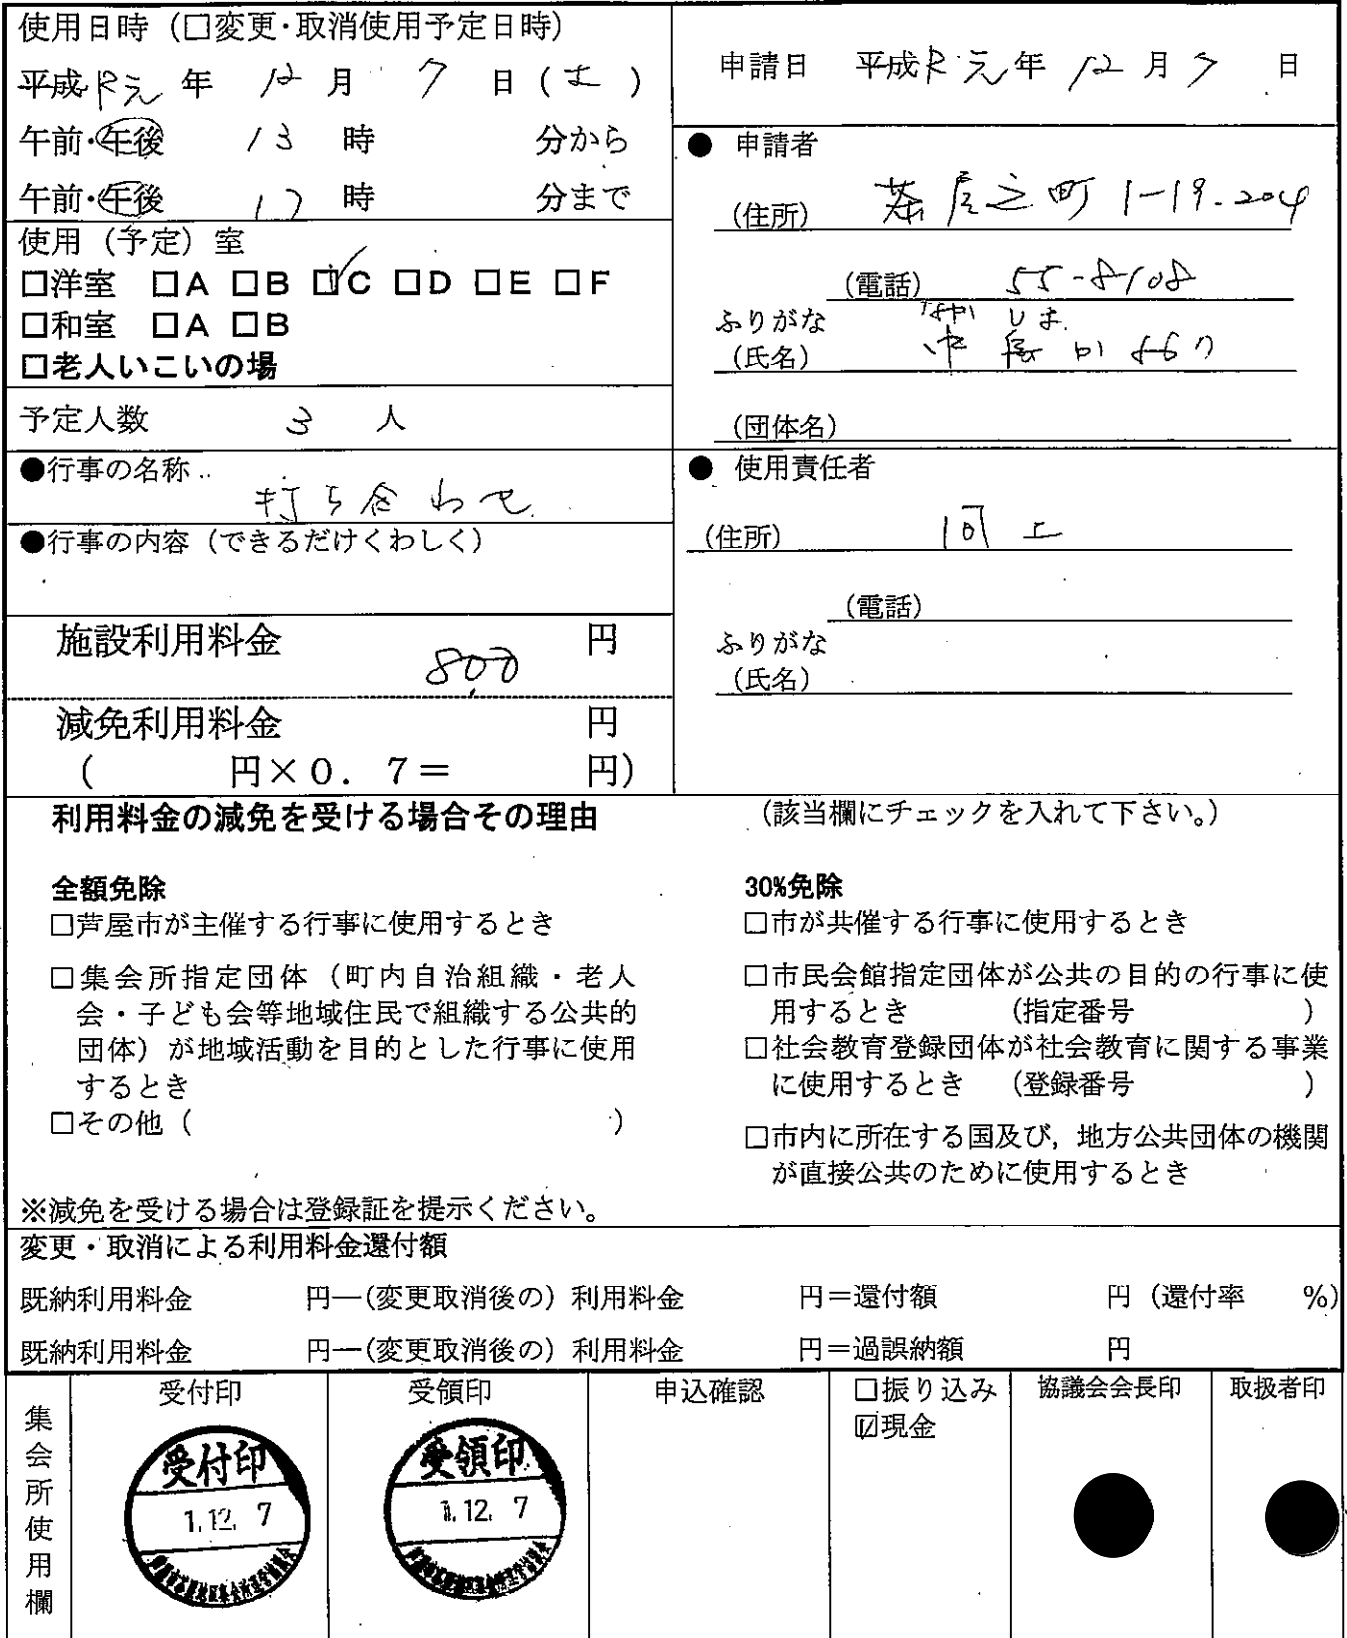 使用日時（□変更・取消使用予定日時）
平成 R元 年 12 月 7 日（土）
午前・午後 13 時 分から
午前・午後 17 時 分まで
使用（予定）室
□洋室 □A □B ☑C □D □E □F
□和室 □A □B
□老人いこいの場
予定人数 3 人
●行事の名称
打ち合わせ
●行事の内容（できるだけくわしく）
施設利用料金 800 円
減免利用料金 円
（ 円×0．7＝ 円）
申請日 平成 R元 年 12 月 7 日
● 申請者
（住所） 茶屋之町 1-19-204
（電話） 55-8108
ふりがな なか しま
（氏名） 中島か
（団体名）
● 使用責任者
（住所） 同上
（電話）
ふりがな
（氏名）
利用料金の減免を受ける場合その理由 （該当欄にチェックを入れて下さい。）
全額免除
□芦屋市が主催する行事に使用するとき
□集会所指定団体（町内自治組織・老人
会・子ども会等地域住民で組織する公共的
団体）が地域活動を目的とした行事に使用
するとき
□その他（ ）
30%免除
□市が共催する行事に使用するとき
□市民会館指定団体が公共の目的の行事に使
用するとき （指定番号 ）
□社会教育登録団体が社会教育に関する事業
に使用するとき （登録番号 ）
□市内に所在する国及び，地方公共団体の機関
が直接公共のために使用するとき
※減免を受ける場合は登録証を提示ください。
変更・取消による利用料金還付額
既納利用料金 円―（変更取消後の）利用料金 円＝還付額 円（還付率 %）
既納利用料金 円―（変更取消後の）利用料金 円＝過誤納額 円
集会所使用欄
受付印
受付印
1.12.7
受領印
受領印
1.12.7
申込確認
□振り込み
☑現金
協議会会長印
取扱者印